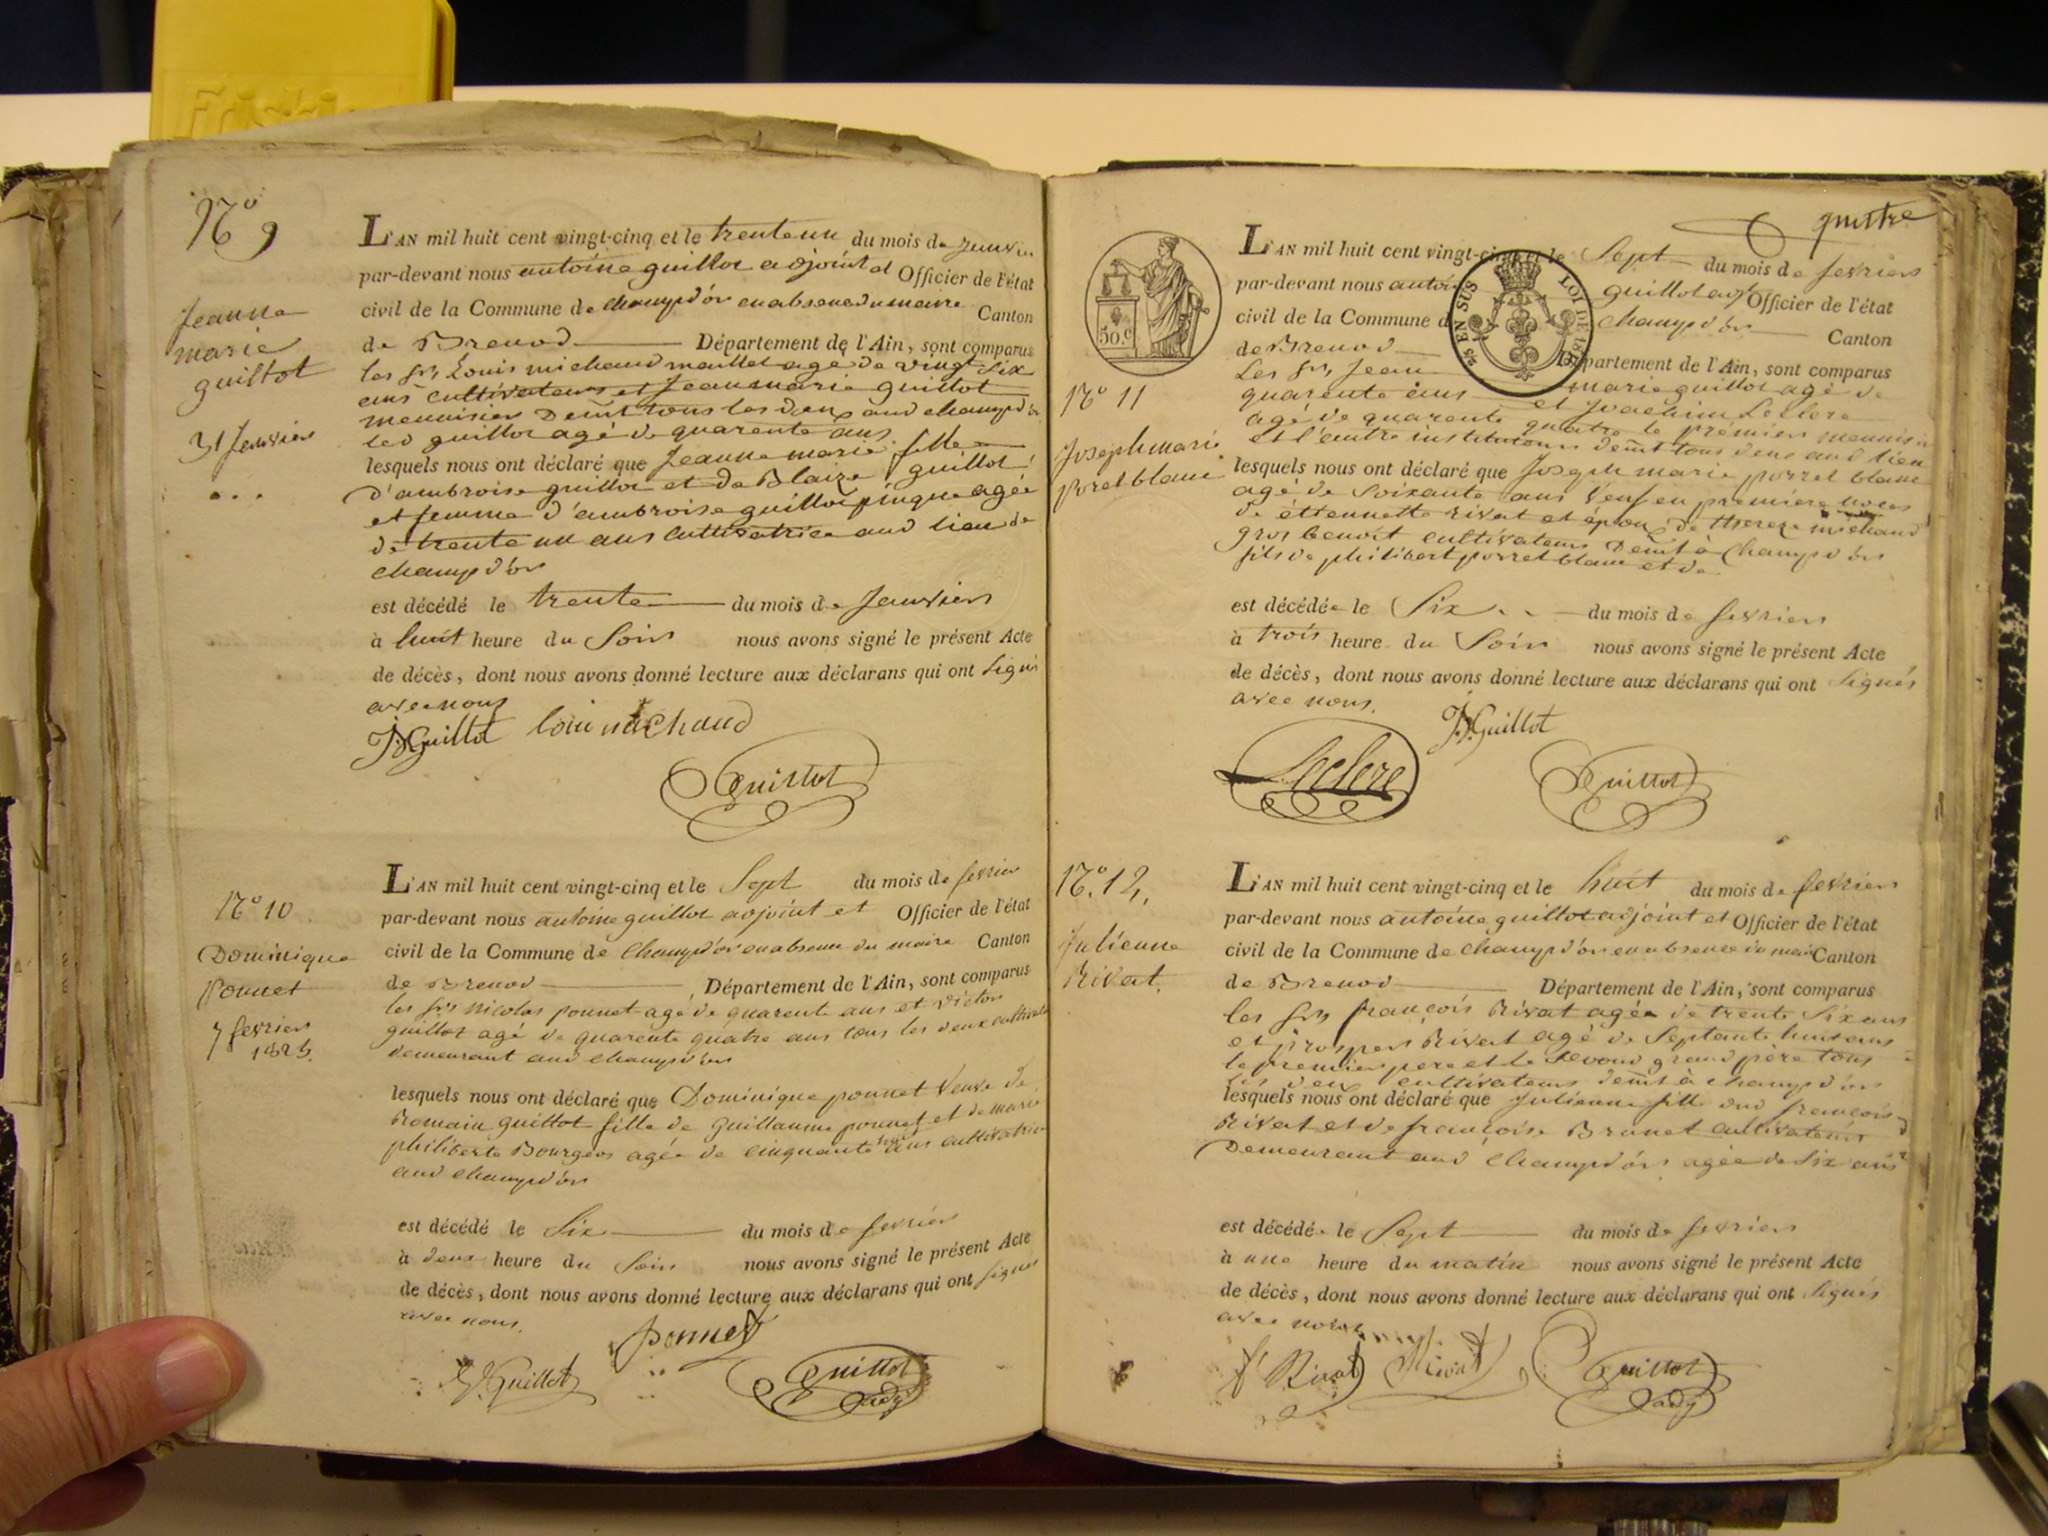 N° 9
Jeanne
marie
guillot
31 Janvier
L'AN mil huit cent vingt-cinq et le trente un du mois de Janvier
par-devant nous antoine guillot adjoint et Officier de l'état
civil de la Commune de champd'or en absence du maire Canton
de Brenod Département de l'Ain, sont comparus
les srs Louis michaud maillet agé de vingt six
ans cultivateur et Jean marie guillot
menuisier demt tous les deux aud champd'or
led guillot agé de quarente ans
lesquels nous ont déclaré que Jeanne marie fille
d'ambroise guillot et de Blaize guillot
et femme d'ambroise guillot pingue agée
de trente un ans cultivatrice aud lieu de
champd'or
est décédé le trente du mois de Janvier
à huit heure du Soir nous avons signé le présent Acte
de décès, dont nous avons donné lecture aux déclarans qui ont signé
avec nous
JMGuillot loui michaud
Guillot
N° 10
Dominique
ponnet
7 fevrier
1825
L'AN mil huit cent vingt-cinq et le Sept du mois de fevrier
par-devant nous antoine guillot adjoint et Officier de l'état
civil de la Commune de champd'or en absence du maire Canton
de Brenod Département de l'Ain, sont comparus
les srs nicolas ponnet agé de quarente ans et victor
guillot agé de quarente quatre ans tous les deux cultivateurs
demeurant aud champd'or
lesquels nous ont déclaré que Dominique ponnet Veuve de
Romain guillot fille de guillaume ponnet et de marie
philiberte Bourgeois agée de cinquante huit ans cultivatrice
aud champd'or
est décédé le Six du mois de fevrier
à deux heure du Soir nous avons signé le présent Acte
de décès, dont nous avons donné lecture aux déclarans qui ont signés
avec nous.
ponnet
V. Guillot Guillot
adj
quatre
50 c.
25 EN SUS LOI DE
N° 11
Joseph marie
poret blanc
L'AN mil huit cent vingt-cinq et le Sept du mois de fevrier
par-devant nous antoine guillot adjt Officier de l'état
civil de la Commune de champd'or Canton
de Brenod Département de l'Ain, sont comparus
Les srs Jean marie guillot agé de
quarente ans et Joachim Leclere
agé de quarente quatre le prémier menuisier
et l'autre instituteur demt tous deux aud lieu
lesquels nous ont déclaré que Joseph marie porret blanc
agé de Soixante ans Veuf en premiere noces
de étiennette rivat et époux de thereze michaud
gros benoit cultivateur Demt à Champd'or
fils de philibert porret blanc et de
est décédé le Six du mois de fevrier
à trois heure du Soir nous avons signé le présent Acte
de décès, dont nous avons donné lecture aux déclarans qui ont signés
avec nous.
JMGuillot
Leclere Guillot
N° 12,
Julienne
Rivat.
L'AN mil huit cent vingt-cinq et le huit du mois de fevrier
par-devant nous antoine guillot adjoint et Officier de l'état
civil de la Commune de champd'or en absence du maire Canton
de Brenod Département de l'Ain, sont comparus
les srs françois Rivat agée de trente Six ans
et prosper Rivat agé de Septante huit ans
le premier pere et le Second grand père tous
les deux cultivateurs demt à champd'or
lesquels nous ont déclaré que Julienne fille dud françois
Rivat et de françoise Brunet cultivateurs
Demeurant aud champd'or agée de Six ans
est décédé le Sept du mois de fevrier
à une heure du matin nous avons signé le présent Acte
de décès, dont nous avons donné lecture aux déclarans qui ont signés
avec nous
f Rivat Rivat Guillot
adj